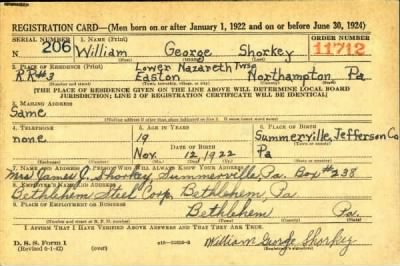 REGISTRATION CARD—(Men born on or after January 1, 1922 and on or before June 30, 1924)
SERIAL NUMBER 1. NAME (Print) ORDER NUMBER
N 206 William George Shorkey 11712
2. PLACE OF RESIDENCE (Print) Lower Nazareth Twsp
R.R#3 Easton Northampton Pa
[THE PLACE OF RESIDENCE GIVEN ON THE LINE ABOVE WILL DETERMINE LOCAL BOARD
JURISDICTION; LINE 2 OF REGISTRATION CERTIFICATE WILL BE IDENTICAL]
3. MAILING ADDRESS
Same
4. TELEPHONE 5. AGE IN YEARS 6. PLACE OF BIRTH
none 19 Summerville, Jefferson Co
DATE OF BIRTH
Nov. 12 1922 Pa
7. NAME AND ADDRESS OF PERSON WHO WILL ALWAYS KNOW YOUR ADDRESS
Mrs James C. Shorkey, Summerville, Pa. Box #238
8. EMPLOYER'S NAME AND ADDRESS
Bethlehem Steel Corp. Bethlehem, Pa.
9. PLACE OF EMPLOYMENT OR BUSINESS
Bethlehem Pa.
I AFFIRM THAT I HAVE VERIFIED ABOVE ANSWERS AND THAT THEY ARE TRUE.
D. S. S. Form 1
(Revised 6-1-42) William George Shorkey